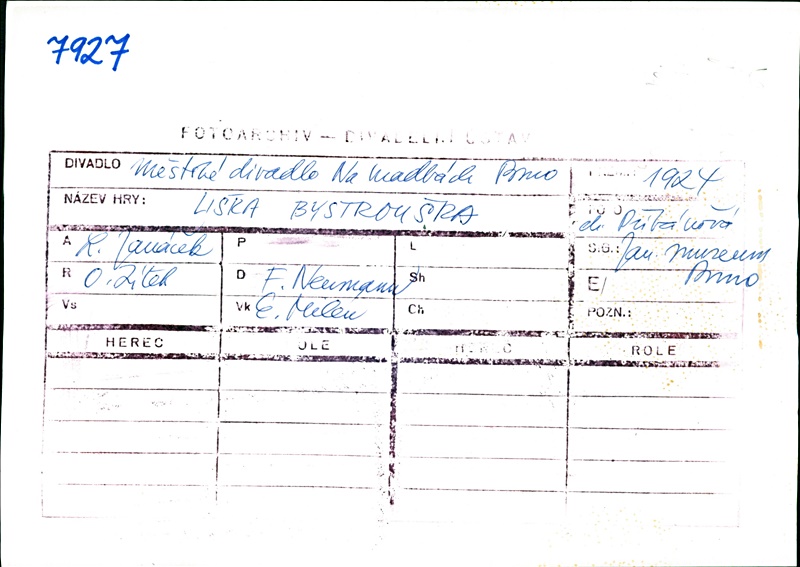 7927
FOTOARCHIV — DIVADELNÍ ÚSTAV
DIVADLO Městské divadlo Na hradbách Brno
1924
NÁZEV HRY: LIŠKA BYSTROUŠKA
dr. Přibáňová
A L. Janáček P L
S.G.: Jan. muzeum
Brno
R O. Zítek D F. Neumann Sh
E/
Vs Vk E. Milen Ch
POZN.:
HEREC ROLE HEREC ROLE